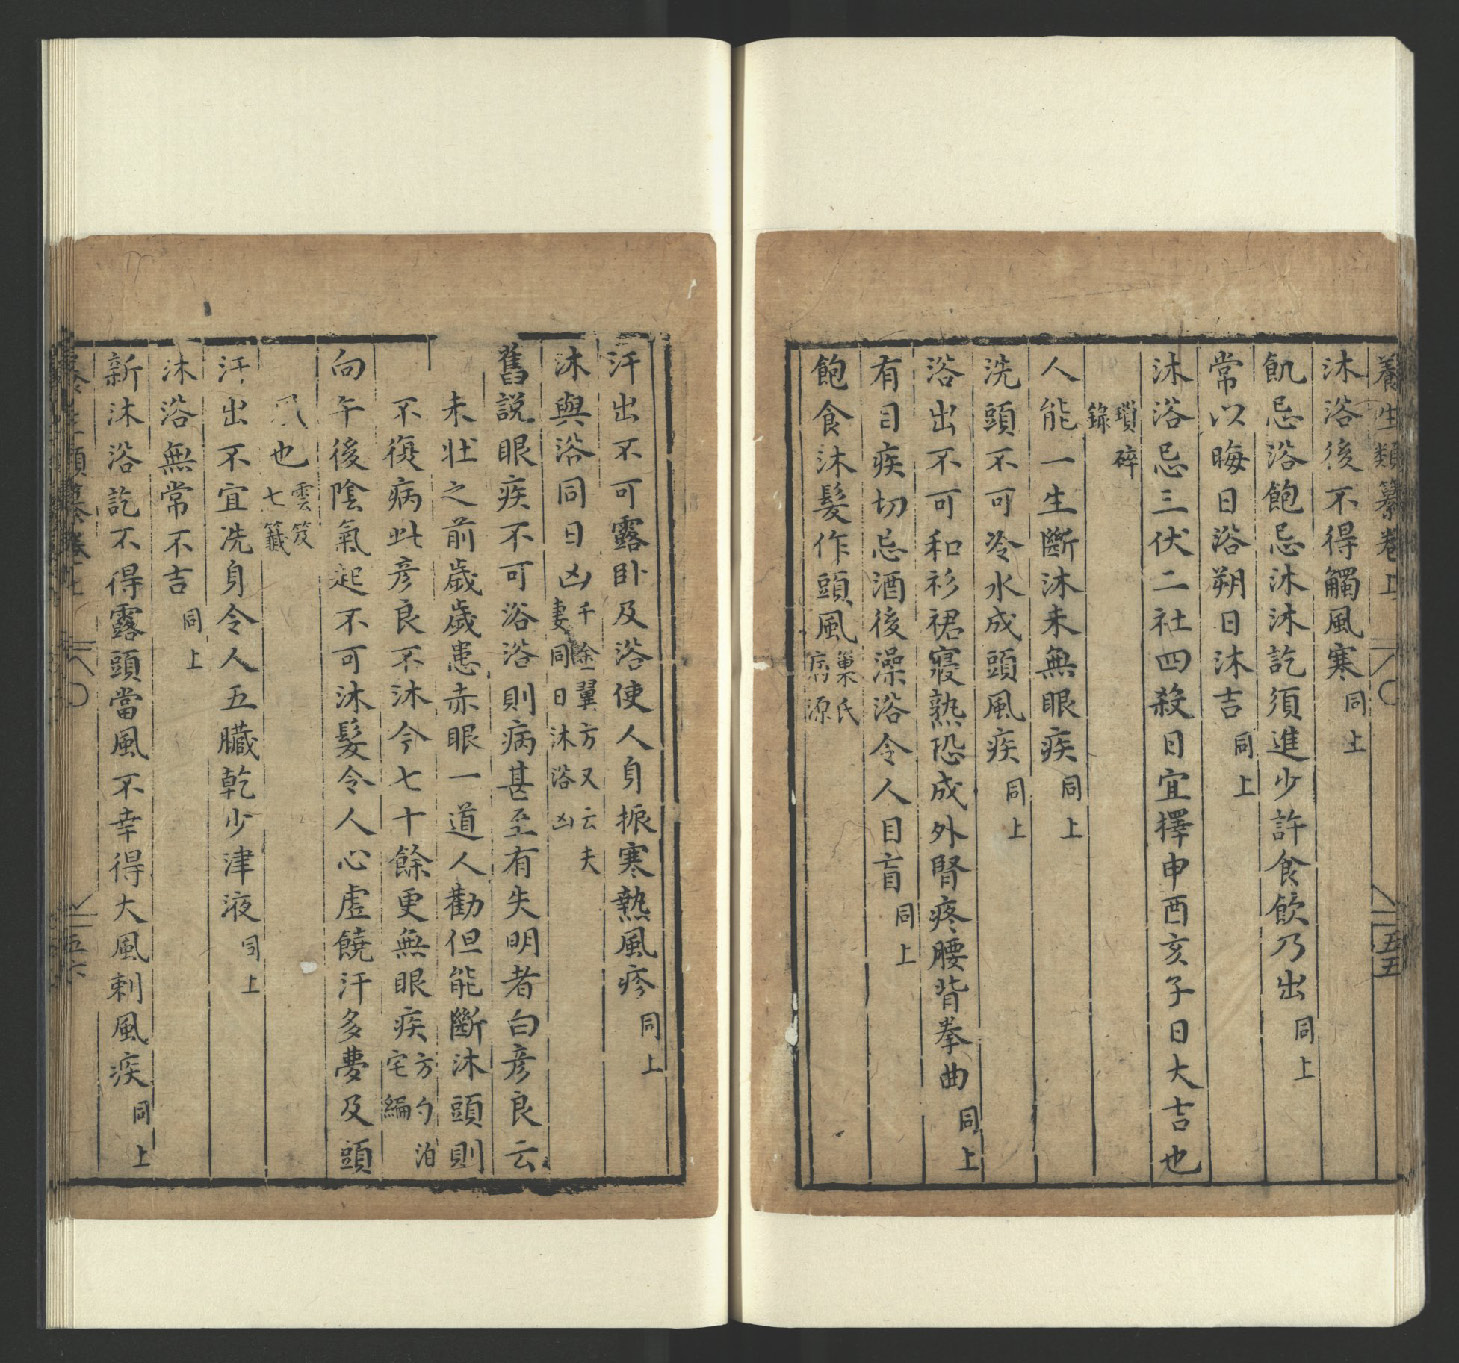 養生類纂卷上
五五
沐浴後不得觸風寒同上
飢忌浴飽忌沐沐訖須進少許食飲乃出同上
常以晦日浴朔日沐吉同上
沐浴忌三伏二社四殺日宜擇申酉亥子日大吉也
瑣碎
錄
人能一生斷沐未無眼疾同上
洗頭不可冷水成頭風疾同上
浴出不可和衫裙寢熟恐成外腎疼腰背拳曲同上
有目疾切忌酒後澡浴令人目盲同上
飽食沐髮作頭風巢氏病源
汗出不可露卧及浴使人身振寒熱風疹同上
沐與浴同日凶千金翼方又云夫妻同日沐浴凶
舊說眼疾不可浴浴則病甚至有失明者白彥良云
未壯之前歲歲患赤眼一道人勸但能斷沐頭則
不復病此彥良不沐今七十餘更無眼疾方勺泊宅編
向午後陰氣起不可沐髮令人心虛饒汗多夢及頭
風也雲笈七籤
汗出不宜洗身令人五臟乾少津液同上
沐浴無常不吉同上
新沐浴訖不得露頭當風不幸得大風刺風疾同上
五六